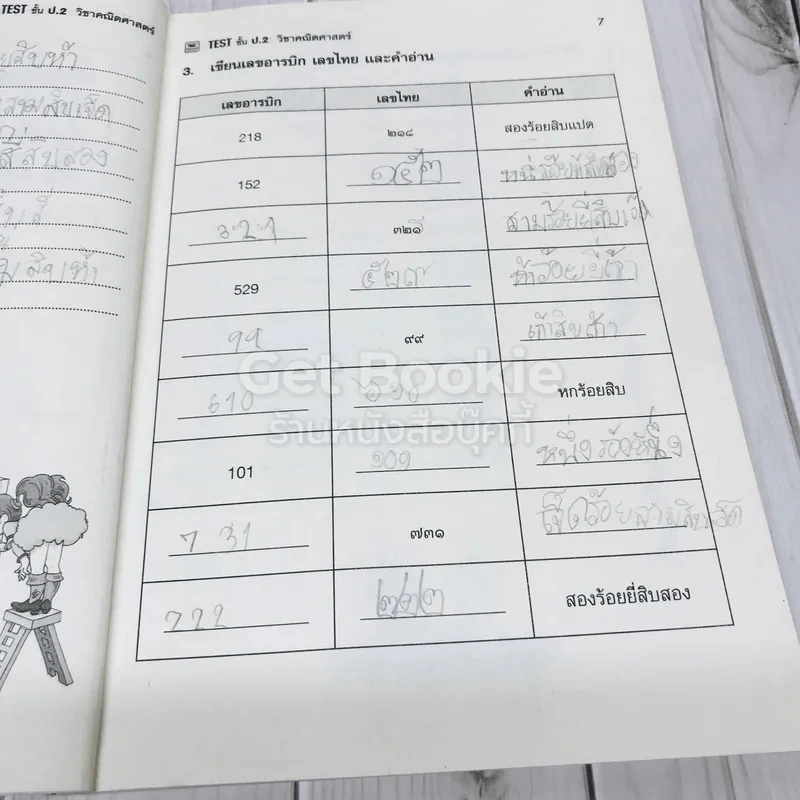 TEST ชั้น ป.2 วิชาคณิตศาสตร์
สามสิบเจ็ด
สี่สิบสอง
สิบห้า
7
TEST ชั้น ป.2 วิชาคณิตศาสตร์
3. เขียนเลขอารบิก เลขไทย และคำอ่าน
เลขอารบิก เลขไทย คำอ่าน
218 ๒๑๘ สองร้อยสิบแปด
152 ๑๕๒
321 ๓๒๑ สามร้อยยี่สิบเอ็ด
529 ๕๒๙ ห้าร้อยยี่เก้า
99 ๙๙
610 ๖๑๐ หกร้อยสิบ
101 ๑๐๑
731 ๗๓๑
222 ๒๒๒ สองร้อยยี่สิบสอง
Get Bookie
ร้านหนังสือบุ๊คกี้